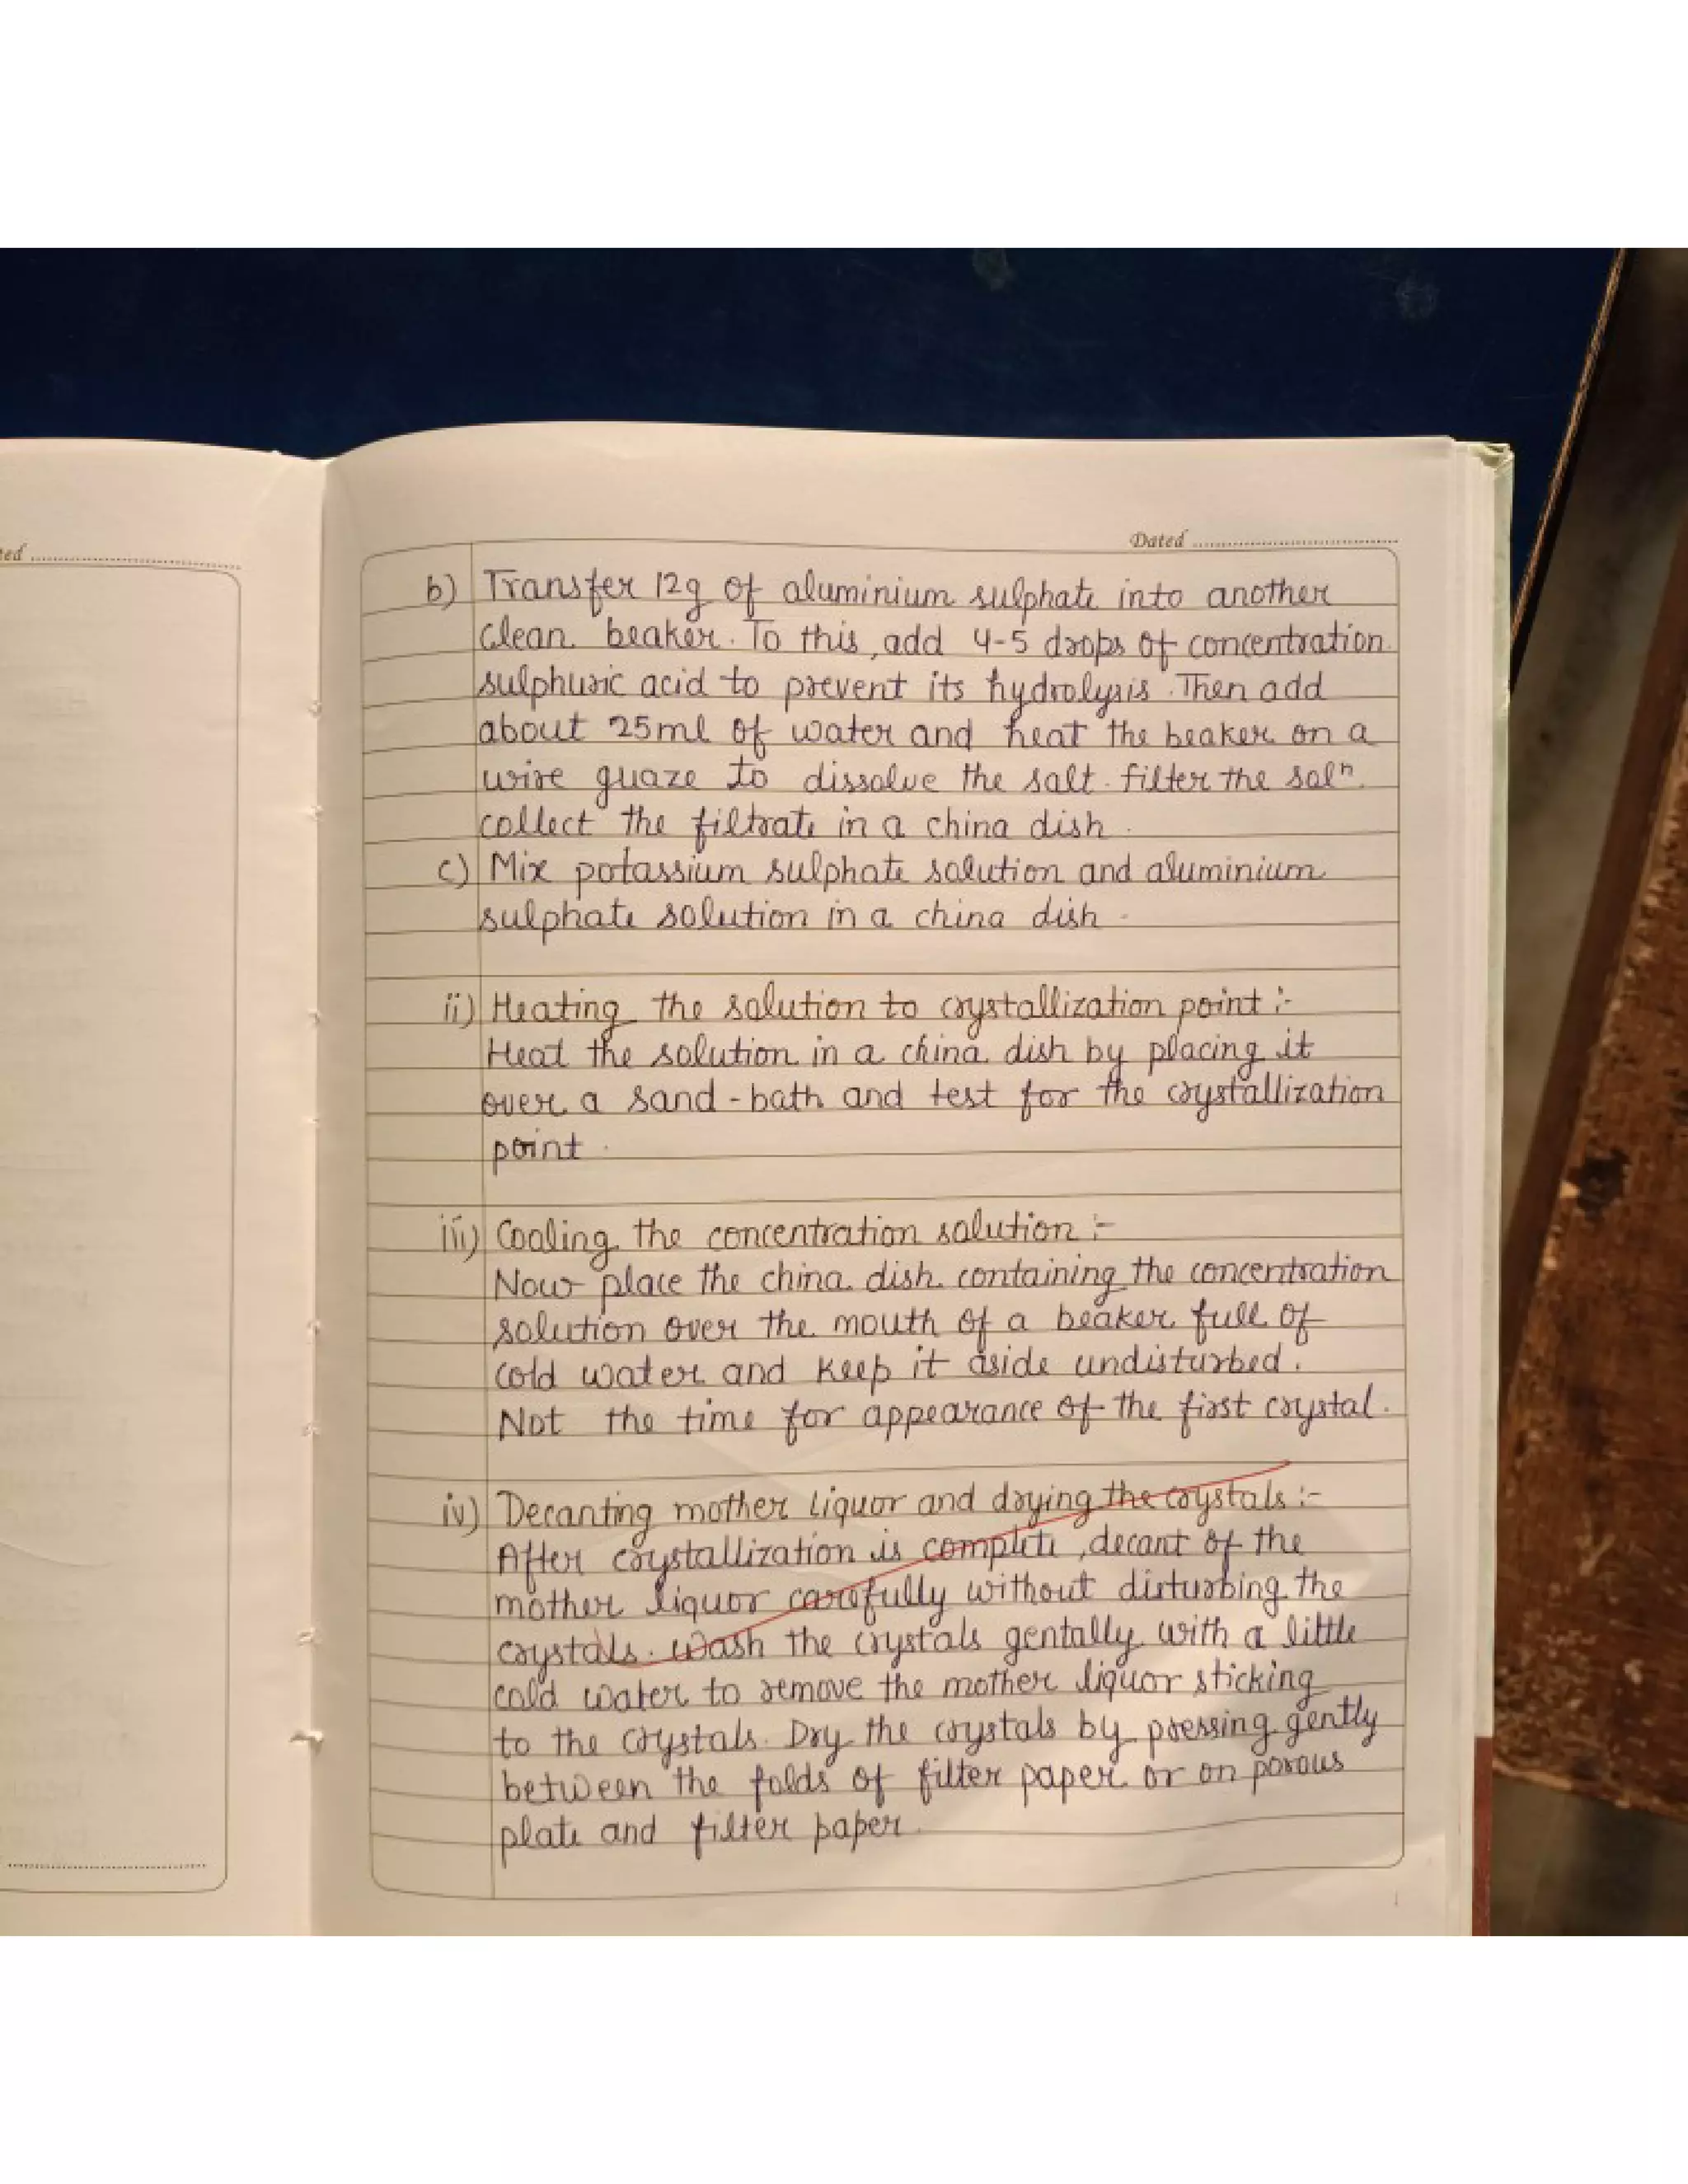 Dated
b) Transfer 12g of aluminium sulphate into another
clean beaker. To this, add 4-5 drops of concentration
sulphuric acid to prevent its hydrolysis. Then add
about 25ml of water and heat the beaker on a
wire guaze to dissolve the salt. filter the solⁿ.
collect the filtrate in a china dish.
c) Mix potassium sulphate solution and aluminium
sulphate solution in a china dish.
ii) Heating the solution to crystallization point :-
Heat the solution in a china dish by placing it
over a sand-bath and test for the crystallization
point.
iii) Cooling the concentration solution :-
Now place the china dish containing the concentration
solution over the mouth of a beaker full of
cold water and keep it aside undisturbed.
Not the time for appearance of the first crystal.
iv) Decanting mother liquor and drying the crystals :-
After crystallization is complete, decant of the
mother liquor carefully without disturbing the
crystals. Wash the crystals gentally with a little
cold water to remove the mother liquor sticking
to the crystals. Dry the crystals by pressing gently
between the folds of filter paper or on porous
plate and filter paper.